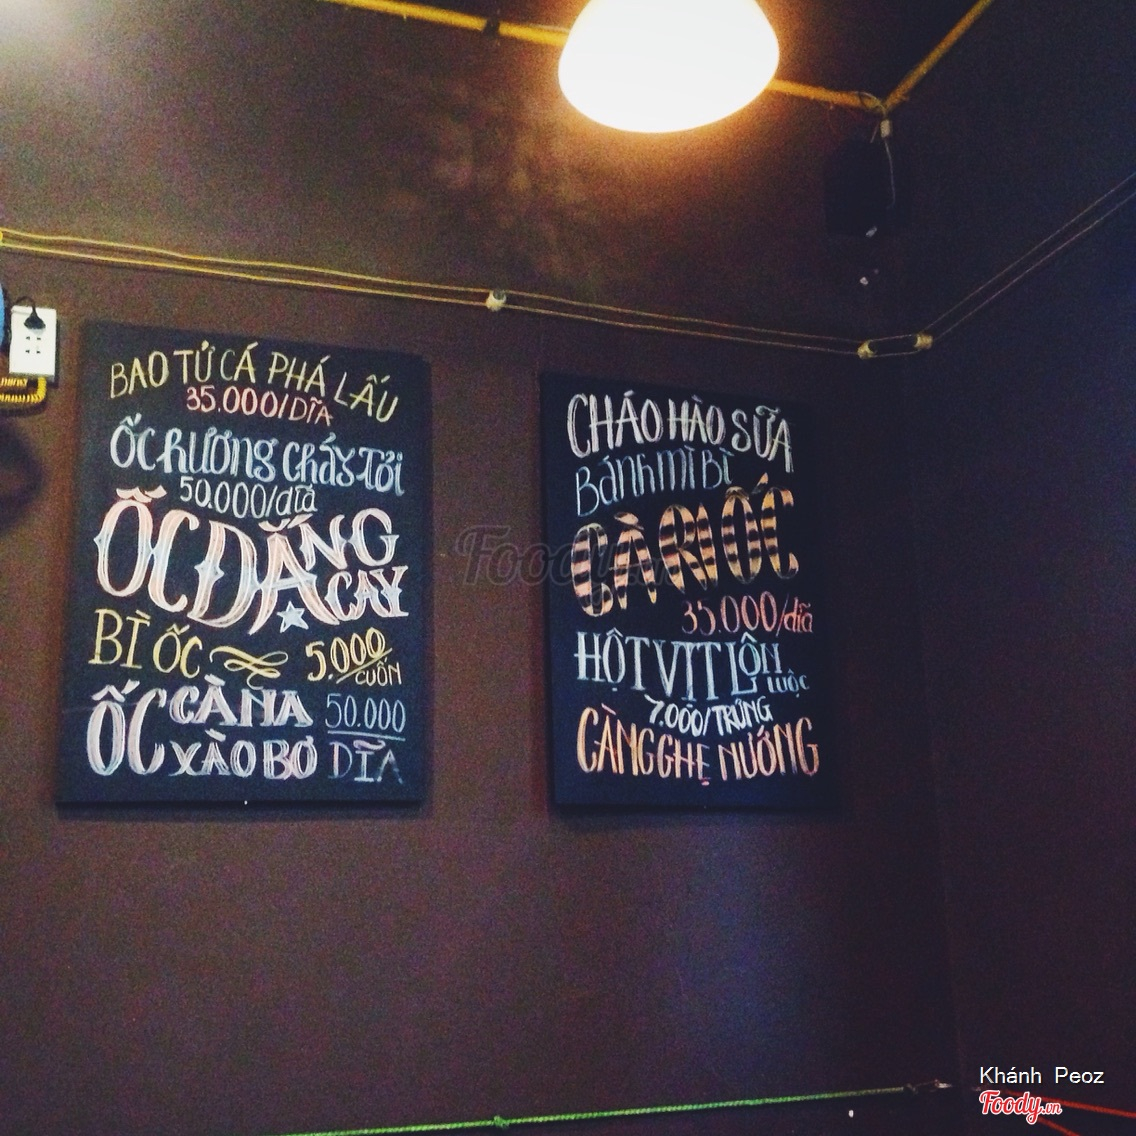 BAO TỬ CÁ PHÁ LẤU
35.000/DĨA
ỐC hƯƠNG cháy Tỏi
50.000/dĩa
ỐC ĐẮNG
CAY
BÌ ỐC 5.000/CUỐN
ỐC CÀ NA
XÀO BƠ
50.000
DĨA
CHÁO HÀO SỮA
Bánh mì BÌ
CÀ RI ỐC
35.000/dĩa
HỘT VỊT LỘN
LUỘC
7.000/TRỨNG
CÀNG GHẸ NƯỚNG
Foody.vn
Khánh Peoz
Foody.vn